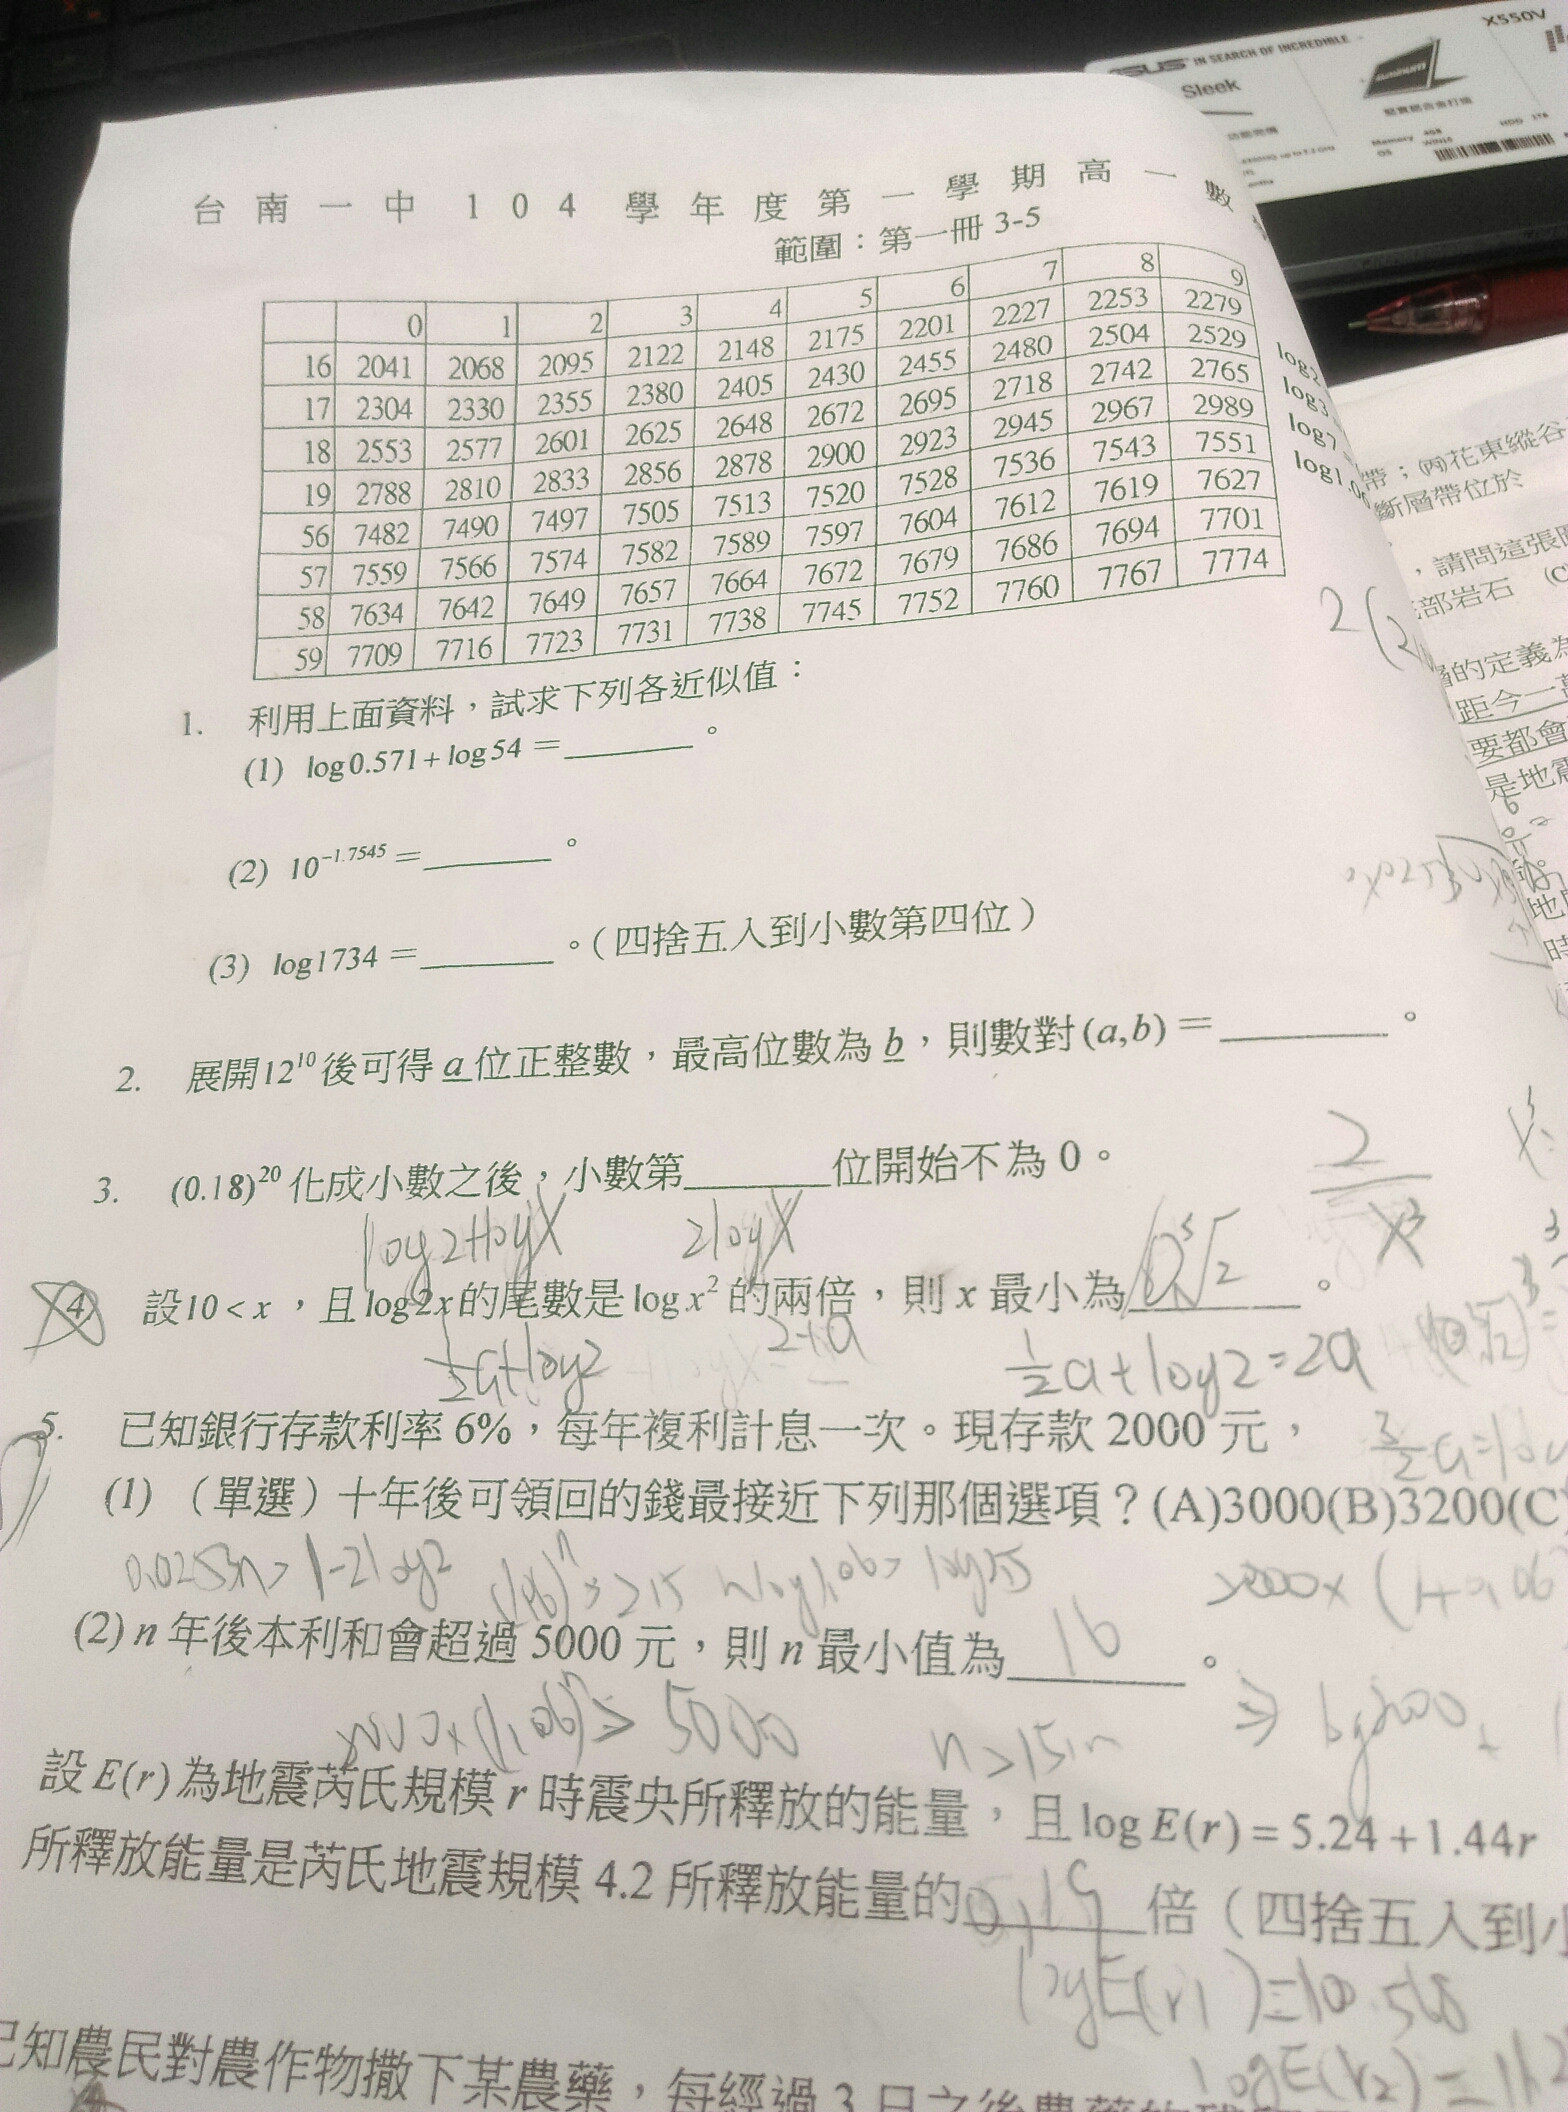 X550V
ASUS IN SEARCH OF INCREDIBLE
Sleek
台南一中104學年度第一學期高一數
範圍：第一冊 3-5
0 1 2 3 4 5 6 7 8 9
16 2041 2068 2095 2122 2148 2175 2201 2227 2253 2279
17 2304 2330 2355 2380 2405 2430 2455 2480 2504 2529
18 2553 2577 2601 2625 2648 2672 2695 2718 2742 2765
19 2788 2810 2833 2856 2878 2900 2923 2945 2967 2989
56 7482 7490 7497 7505 7513 7520 7528 7536 7543 7551
57 7559 7566 7574 7582 7589 7597 7604 7612 7619 7627
58 7634 7642 7649 7657 7664 7672 7679 7686 7694 7701
59 7709 7716 7723 7731 7738 7745 7752 7760 7767 7774
log2
log3
log7
log1.0
帶；(丙)花東縱谷
斷層帶位於
，請問這張
部岩石 (C
的定義為
距今一
要都會
是地震
1. 利用上面資料，試求下列各近似值：
(1) log0.571+log54＝______。
(2) 10^-1.7545＝______。
(3) log1734＝______。（四捨五入到小數第四位）
2. 展開12^10後可得a位正整數，最高位數為b，則數對(a,b)＝______。
2/x^3
3. (0.18)^20化成小數之後，小數第______位開始不為0。
log2+logX 2logX
4. 設10<x，且log2x的尾數是logx^2的兩倍，則x最小為10∛2。
½a+log2 2+a ½a+log2=2a
5. 已知銀行存款利率6%，每年複利計息一次。現存款2000元，
(1)（單選）十年後可領回的錢最接近下列那個選項？(A)3000(B)3200(C)
0.0253n>1-2log2 (1.06)^n>2.5 nlog1.06>log2.5 2000×(1+0.06
(2) n年後本利和會超過5000元，則n最小值為16。
2000×(1.06)^n≥5000 n>15...
設E(r)為地震芮氏規模r時震央所釋放的能量，且logE(r)=5.24+1.44r
所釋放能量是芮氏地震規模4.2所釋放能量的______倍（四捨五入到小
logE(r1)=10.568
logE(r2)=11.2
已知農民對農作物撒下某農藥，每經過3日之後農藥的